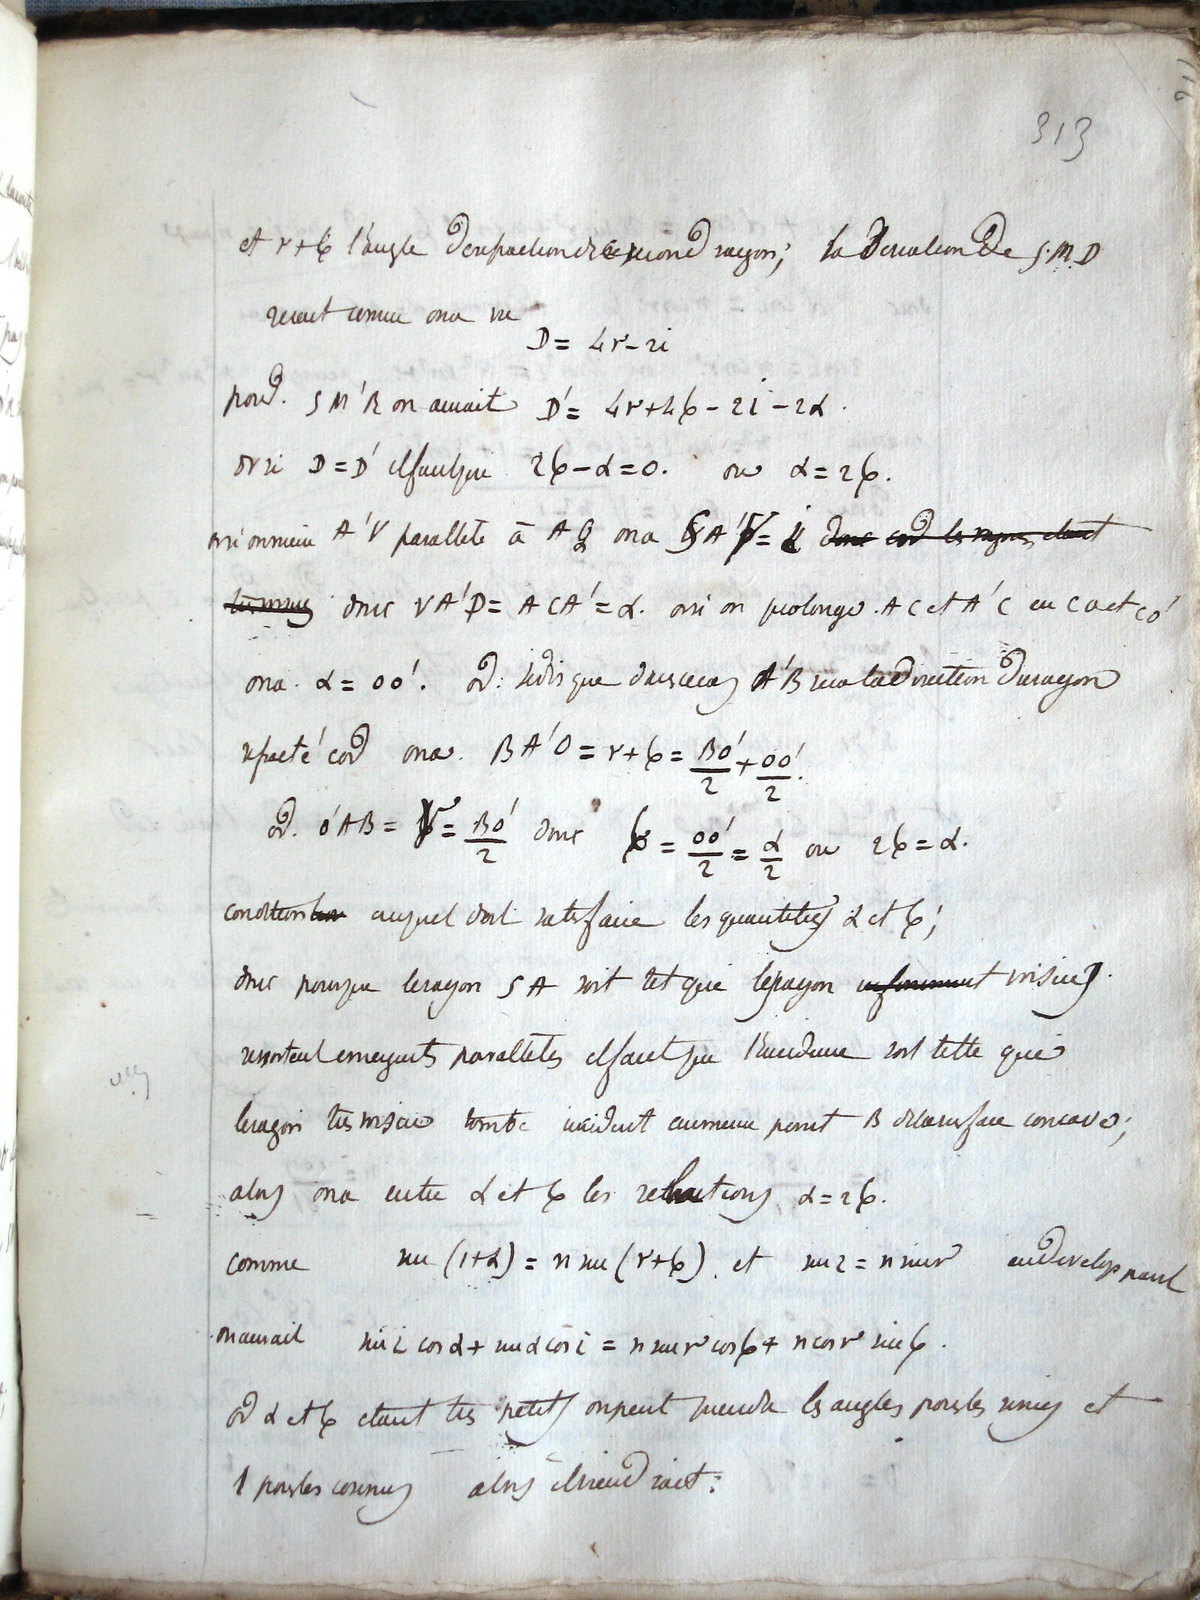 313
et r+6 l'angle de refraction de ce second rayon; la deviation de S.M.D
serait comme on a vu
D = 4r-2i
pour. SM'R on aurait D' = 4r+46-2i-2α.
or si D=D' il faut que 26-α=0. ou α=26.
or si on mene A'V parallele à AQ on a SA'V= i donc car les rayons etant
tres minces donc VA'D= ACA'=α. or si on prolonge .AC et A'C en co et co'
on a. α= oo'. or: A'B sera la direction du rayon
refracté car on a. BA'O = r+6 = BO'/2 + OO'/2.
or. O'AB = r = BO'/2 donc 6 = OO'/2 = α/2 ou 26=α.
condition auquel doit satisfaire les quantités α et 6;
donc pour que le rayon SA soit tel que les rayon infiniment voisins
ressortent emergents paralleles il faut que l'incidence soit telle que
le rayon tres voisin tombe incident au meme point B de la surface concave;
alors on a entre α et 6 les relations α=26.
comme sin (i+α) = n sin (r+6). et sin i = n sin r en developpant
on aurait sin i cos α + sin α cos i = n sin r cos 6 + n cos r sin 6.
or α et 6 etant tres petits on peut prendre les angles pour les sinus et
1 pour les cosinus alors il viendrait: